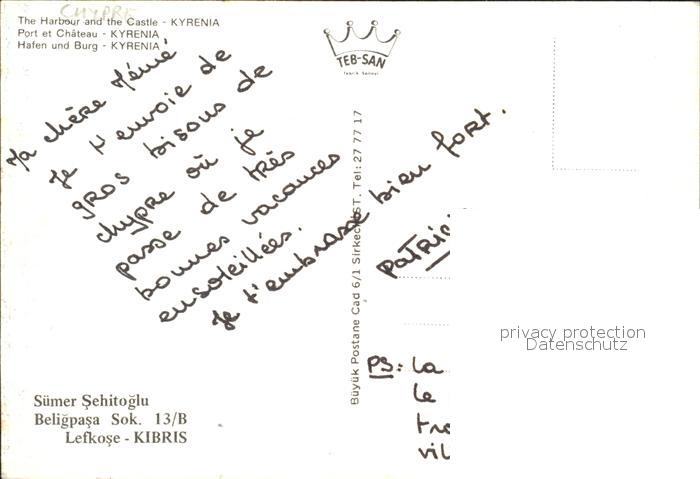 CHYPRE
The Harbour and the Castle - KYRENIA
Port et Château - KYRENIA
Hafen und Burg - KYRENIA
TEB-SAN
Ma chère Mémé
Je t'envoie de
gros bisous de
chypre où je
passe de très
bonnes vacances
ensoleillées.
Je t'embrasse bien fort.
PS: La
le
vil
Büyük Postane Cad 6/1 Sirkeci-İST. Tel: 27 77 17
privacy protection
Datenschutz
Sümer Şehitoğlu
Beliğpaşa Sok. 13/B
Lefkoşe - KIBRIS